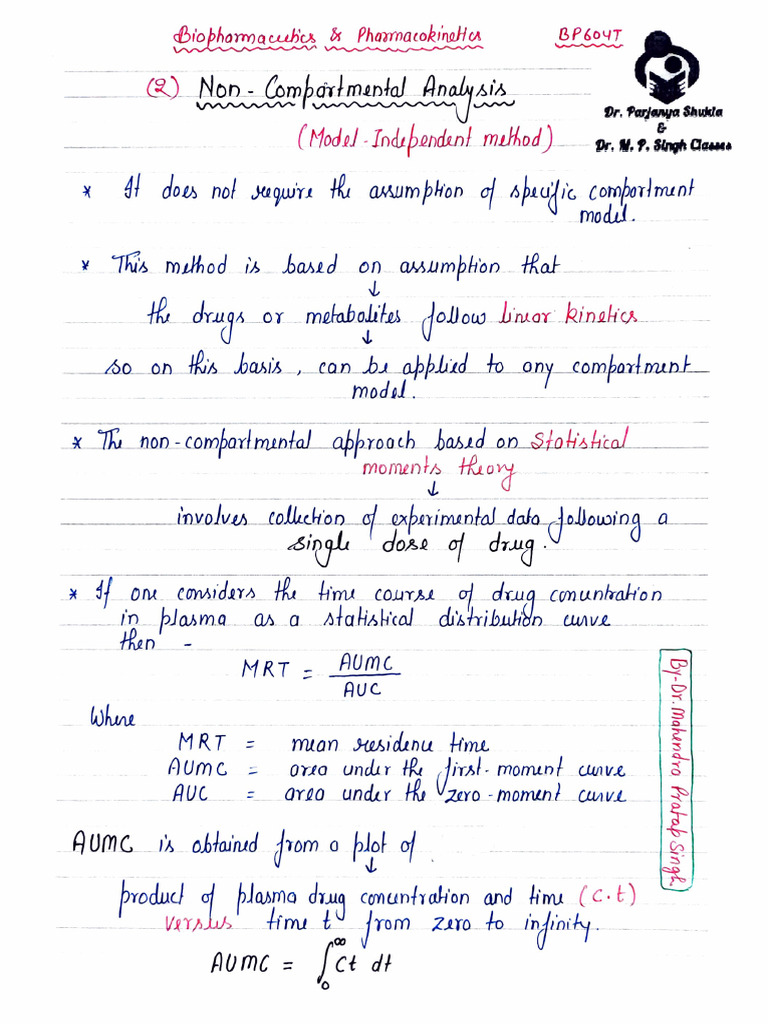 Biopharmaceutics & Pharmacokinetics BP604T
Dr. Parjanya Shukla
&
Dr. M. P. Singh Classes
(2) Non-Compartmental Analysis
(Model-Independent method)
* It does not require the assumption of specific compartment
model.
* This method is based on assumption that
↓
the drugs or metabolites follow linear kinetics
↓
so on this basis, can be applied to any compartment
model.
* The non-compartmental approach based on Statistical
moments theory
↓
involves collection of experimental data following a
single dose of drug.
* If one considers the time course of drug concentration
in plasma as a statistical distribution curve
then -
MRT = AUMC
AUC
Where
MRT = mean residence time
AUMC = area under the first-moment curve
AUC = area under the zero-moment curve
AUMC is obtained from a plot of
↓
product of plasma drug concentration and time (C.t)
versus time t from zero to infinity.
AUMC = ∫₀^∞ Ct dt
By-Dr. Mahendra Pratap Singh